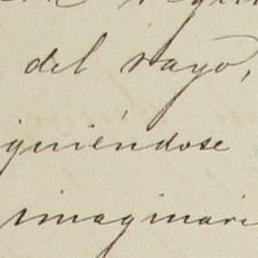 del rayo,
iguiéndose
imaginari